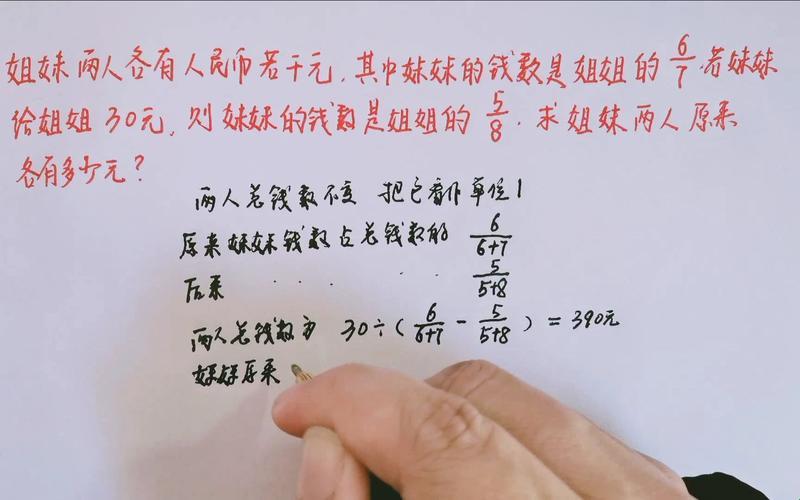 姐妹两人各有人民币若干元,其中妹妹的钱数是姐姐的 6/7.若妹妹
给姐姐30元,则妹妹的钱数是姐姐的 5/8.求姐妹两人原来
各有多少元?
两人总钱数不变 把它看作单位1
原来妹妹钱数占总钱数的 6/(6+7)
后来 · · · · · 5/(5+8)
两人总钱数为 30÷(6/(6+7) - 5/(5+8)) = 390元
妹妹原来